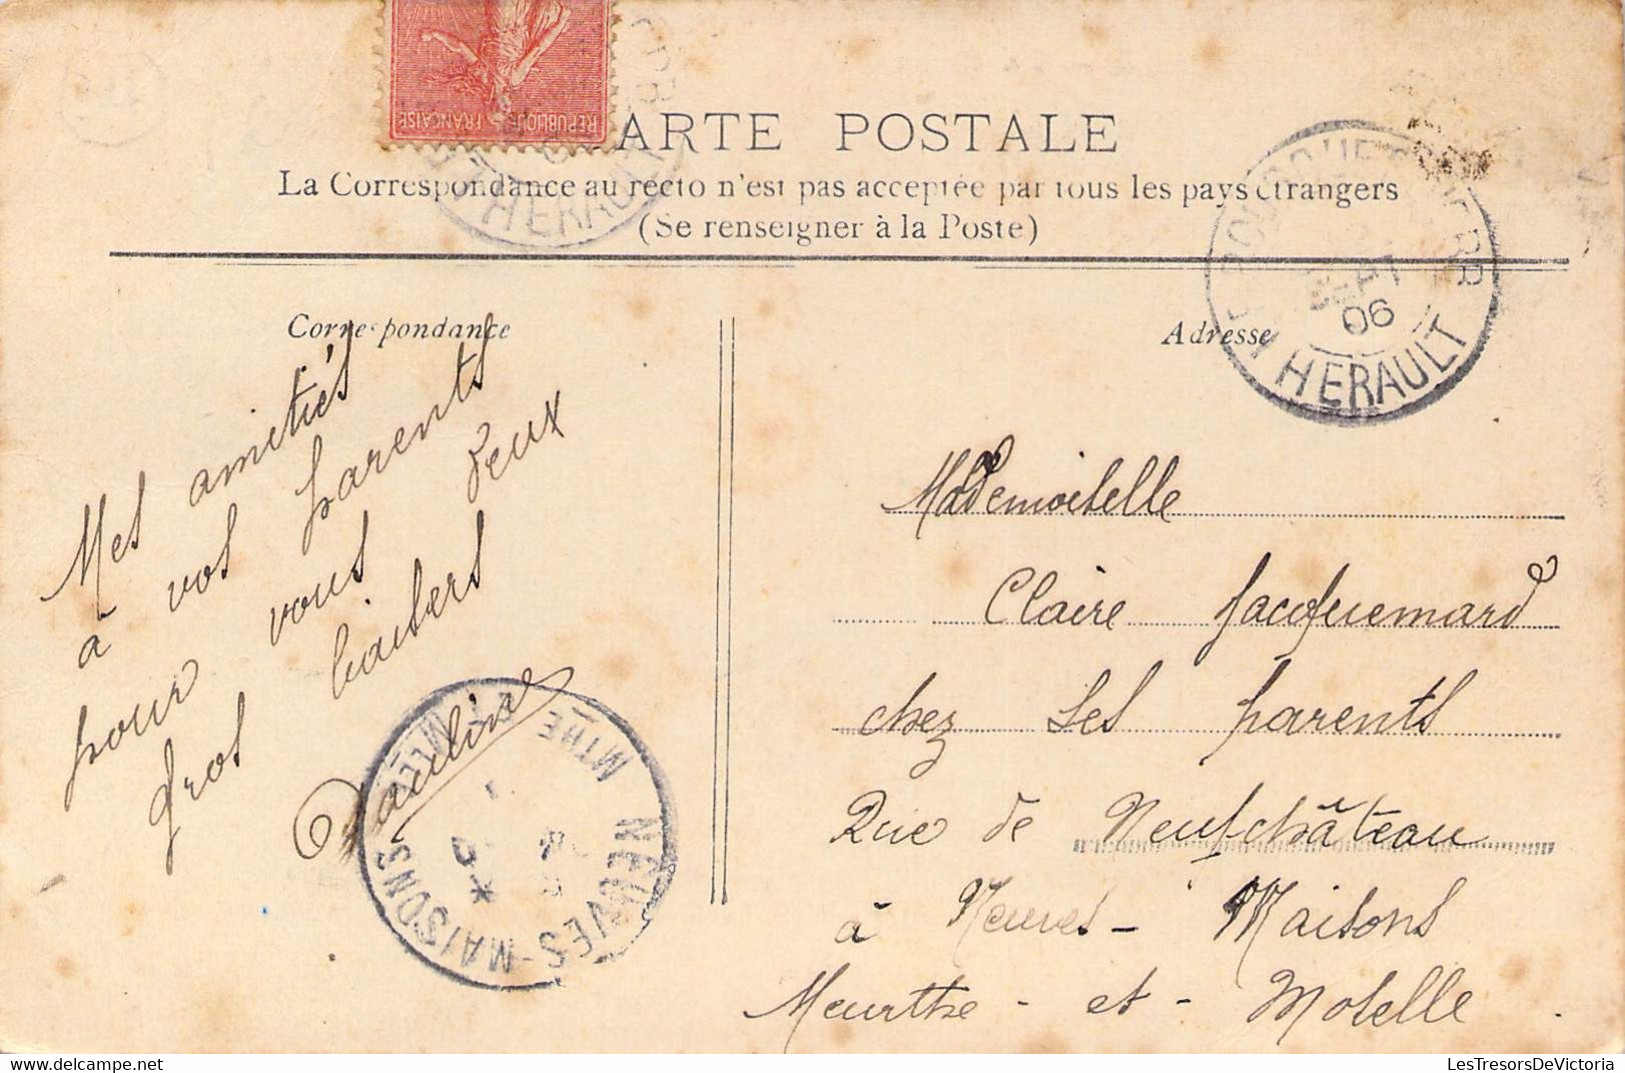 RÉPUBLIQUE FRANÇAISE
CARTE POSTALE
La Correspondance au recto n'est pas acceptée par tous les pays étrangers
(Se renseigner à la Poste)
HERAULT
06
HERAULT
Correspondance
Adresse
Mes amitiés
à vos parents
pour vous deux
gros baisers
Pauline
NEUVES-MAISONS
Mademoiselle
Claire Jacquemard
chez ses parents
Rue de Neufchâteau
à Neuves-Maisons
Meurthe-et-Motelle
LesTresorsDeVictoria